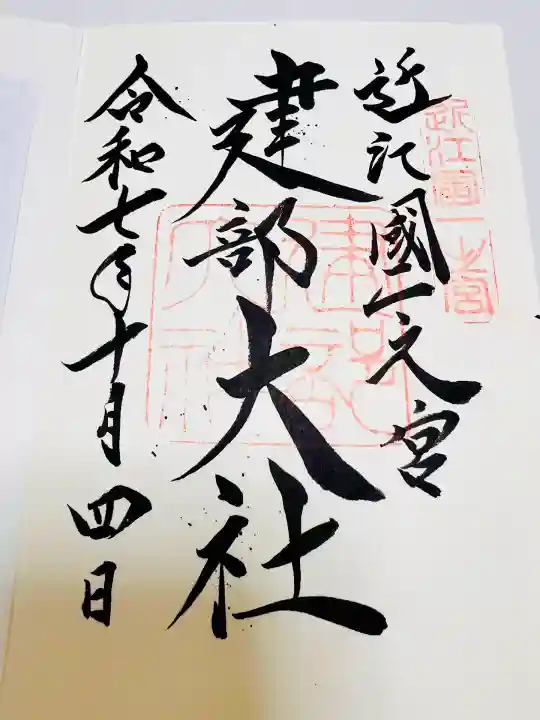 近江國一之宮
建部大社
令和七年十月四日
近江國一之宮